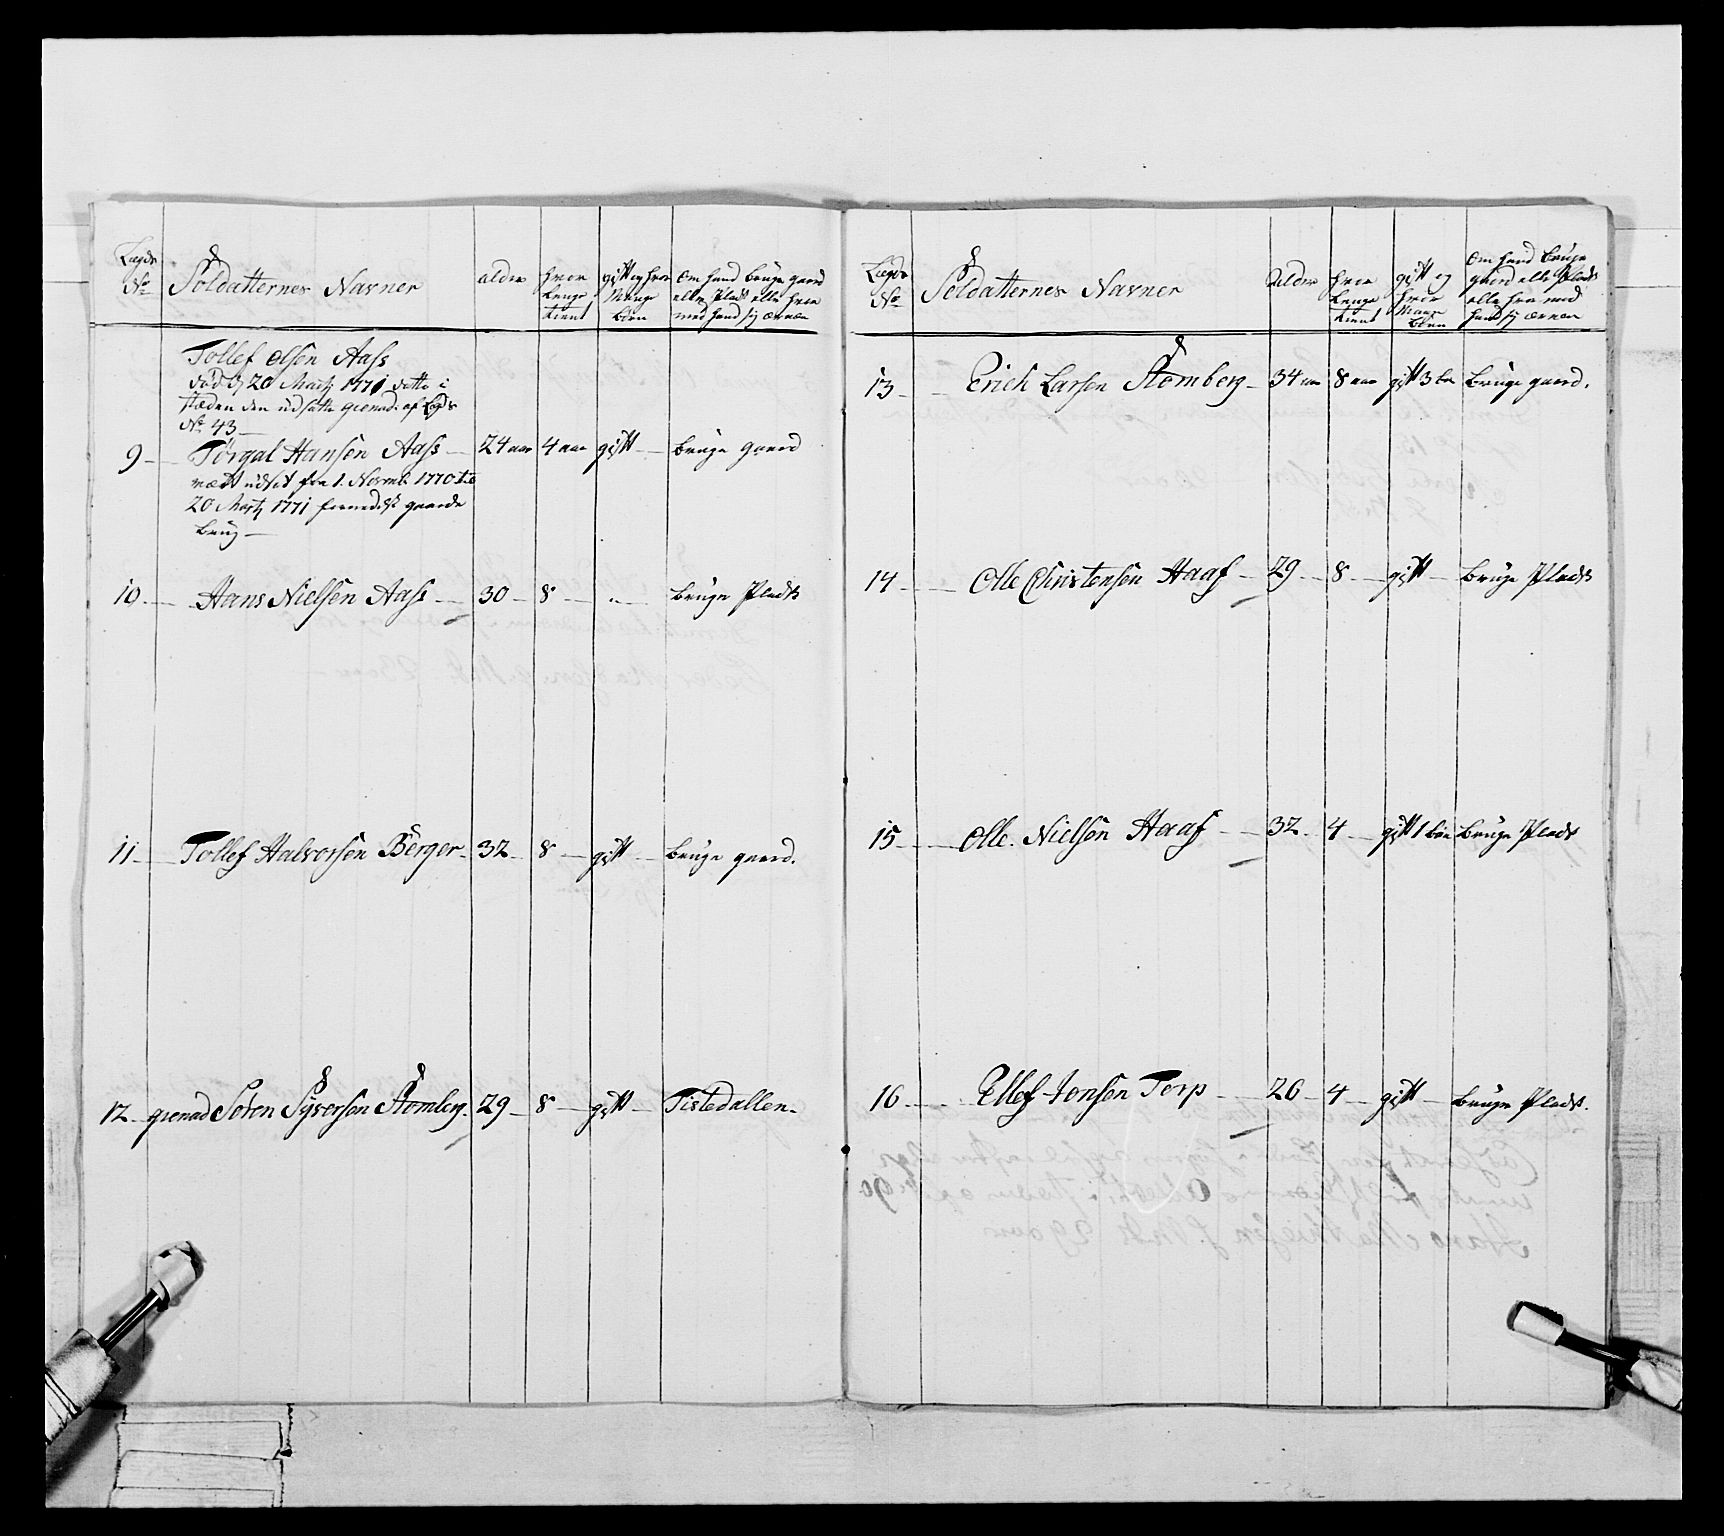 Legds No Soldatternes Navner alder hvor lenge tient gift og hvor Mange børn om hand bruge gaard eller Plads eller hvor med hand sig ernær
Tollef olsen Aass
død d 20 Martj 1771 dette i
stæden den udsatte grenad: af Legds
No 43
9 Törgal Hansen Aass 24 aar 4 aar gift bruge gaard
vært udsat fra 1. Novemb: 1770 til
20 Martj 1771 formedelst gaards
brug
10 Hans Nielsen Aass 30 8 " bruge Plads
11 Tollef Halvorsen Berger 32 8 gift bruge gaard.
12 grenad Sören Syversen Stomberg 29 8 gift Tistedallen
Legds No Soldatternes Navner Alder hvor lenge tient gift og hvor Mange børn om hand bruge gaard eller Plads eller hvor med hand sig ernær
13 Erich Larsen Stomberg 34 aar 8 aar gift 3 bør bruge gaard.
14 Olle Christensen Haaf 29 8 gift bruge Plads
15 Olle Nielsen Haaf 32 4 gift 1 bør bruge Plads
16 Ellef Jonsen Torp 26 4 gift bruge Plads.